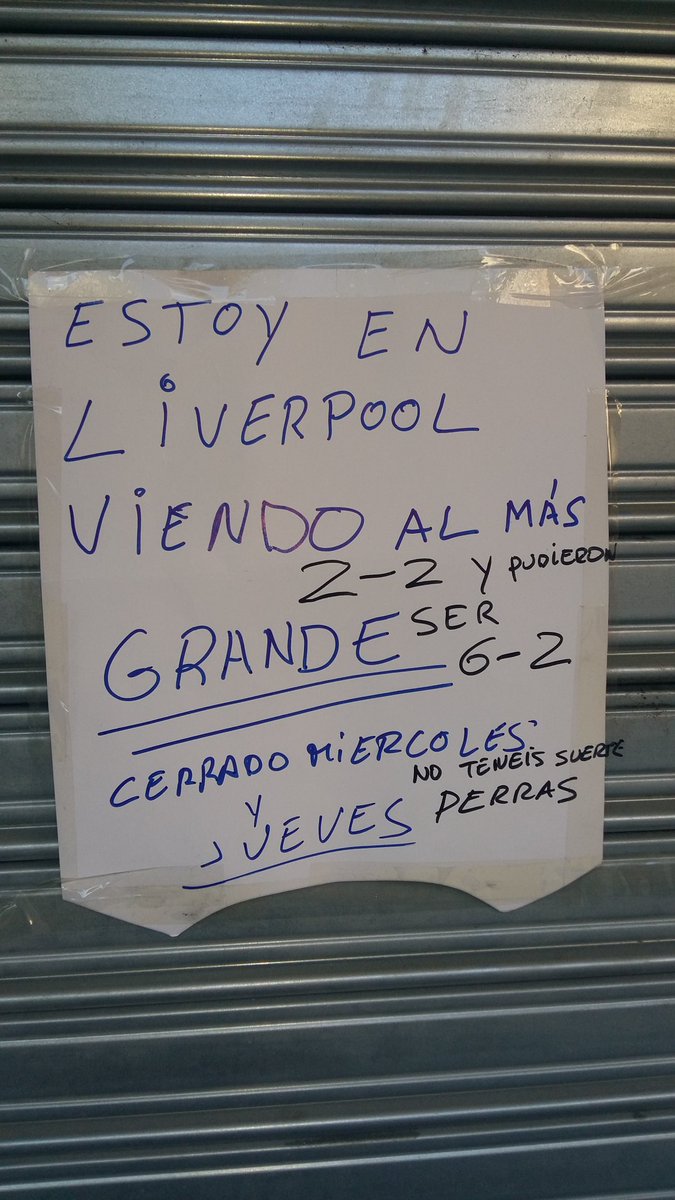 ESTOY EN
LIVERPOOL
VIENDO AL MÁS
2-2 Y PUDIERON
GRANDE SER
6-2
CERRADO MIERCOLES
NO TENEIS SUERTE
Y PERRAS
JUEVES